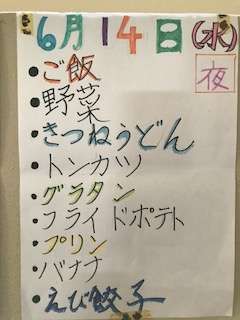 6月14日(水)
夜
●ご飯
●野菜
●きつねうどん
●トンカツ
●グラタン
●フライドポテト
●プリン
●バナナ
●えび餃子